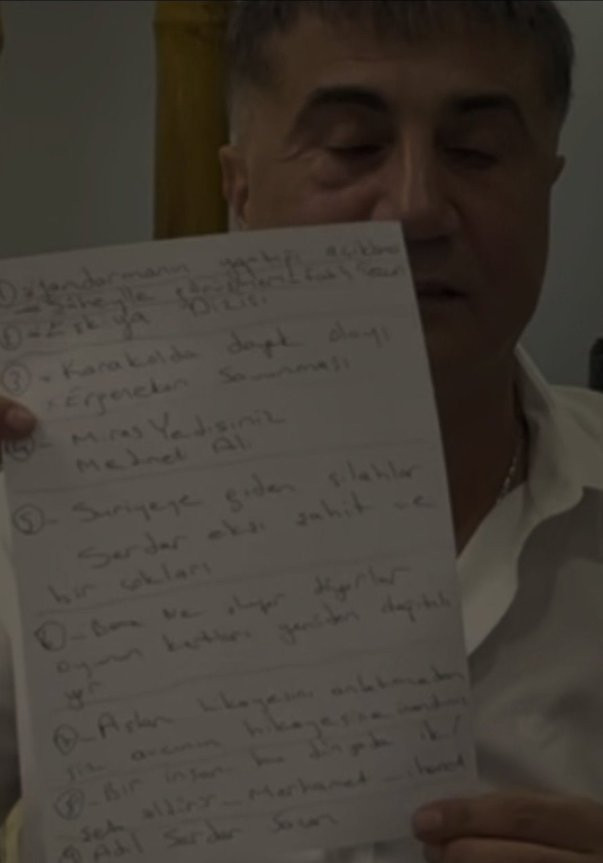 ① - Jandarmanın yaptığı açıklama
- Süheyla
② - Eşkıya Dizisi
③ - Karakolda dayak olayı
- Ergenekon Savunması
- Miras Yedisiniz
Mehmet Ali
⑤ - Suriyeye giden silahlar
Serdar ekşi şahit ve
bir çokları
- Bana ne oluyor diyorlar
oyunun kartları yeniden dağıtılı
yor
- Aslan hikayesini anlatmadan
siz avcının hikayesine inandınız
⑧ - Bir insanı bu dünyada iki
şey öldürür - Merhamet -
Adil Serdar Saçan